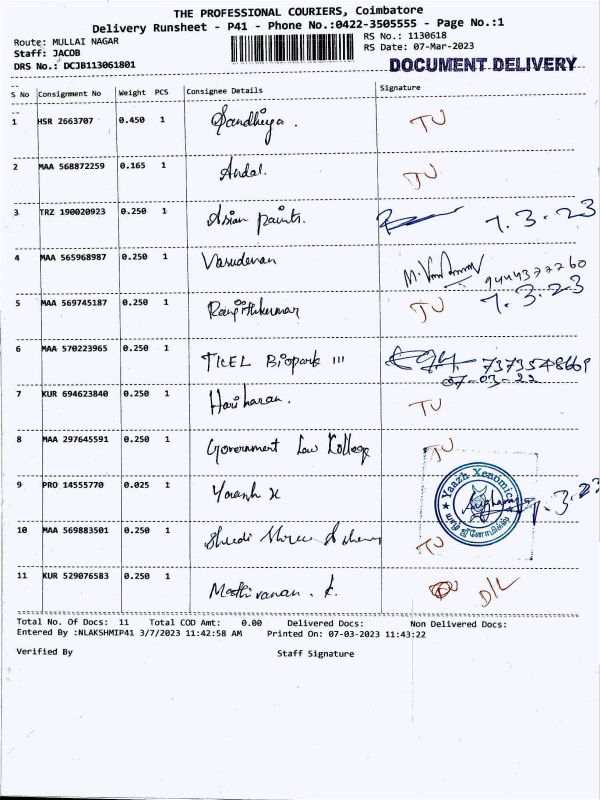 THE PROFESSIONAL COURIERS, Coimbatore
Delivery Runsheet - P41 - Phone No.:0422-3505555 - Page No.:1
Route: MULLAI NAGAR
Staff: JACOB
DRS No.: DCJB113061801
RS No.: 1130618
RS Date: 07-Mar-2023
DOCUMENT DELIVERY
S No Consignment No Weight PCS Consignee Details Signature
1 HSR 2663707 0.450 1 Sandhiya. TU
2 MAA 568872259 0.165 1 Andal. TU
3 TRZ 190020923 0.250 1 Asian paints. 7.3.23
4 MAA 565968987 0.250 1 Vasudevan 9444377760
5 MAA 569745187 0.250 1 Ranjithkumar TU 7.3.23
6 MAA 570223965 0.250 1 TICEL Biopark III 7373548669
07-03-22
7 KUR 694623840 0.250 1 Hariharan. TU
8 MAA 297645591 0.250 1 Government Law Kollege TU
9 PRO 14555770 0.025 1 Yaazh X 7.3.23
Yaazh Xenomics
யாழ் ஜீனோமிக்ஸ்
10 MAA 569883501 0.250 1 TU
11 KUR 529076583 0.250 1 Mathivanan. K. D/L
Total No. Of Docs: 11 Total COD Amt: 0.00 Delivered Docs: Non Delivered Docs:
Entered By :NLAKSHMIP41 3/7/2023 11:42:58 AM Printed On: 07-03-2023 11:43:22
Verified By Staff Signature